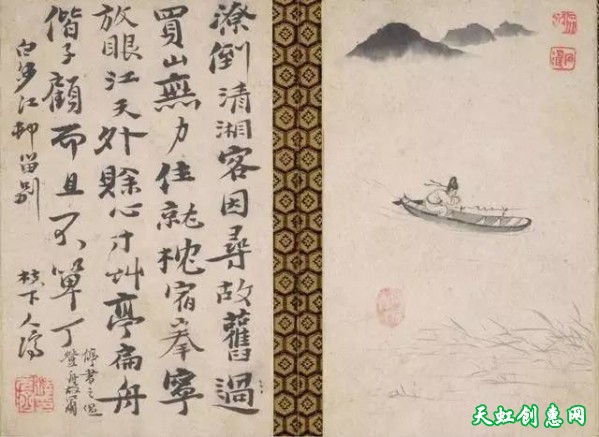 潦倒清湘客因尋故舊過
買山無力住就枕宿拳寧
放眼江天外賒心寸艸亭扁舟
偕子顧而且不單丁
白沙江邨留別
枝下人濟
天虹创惠网